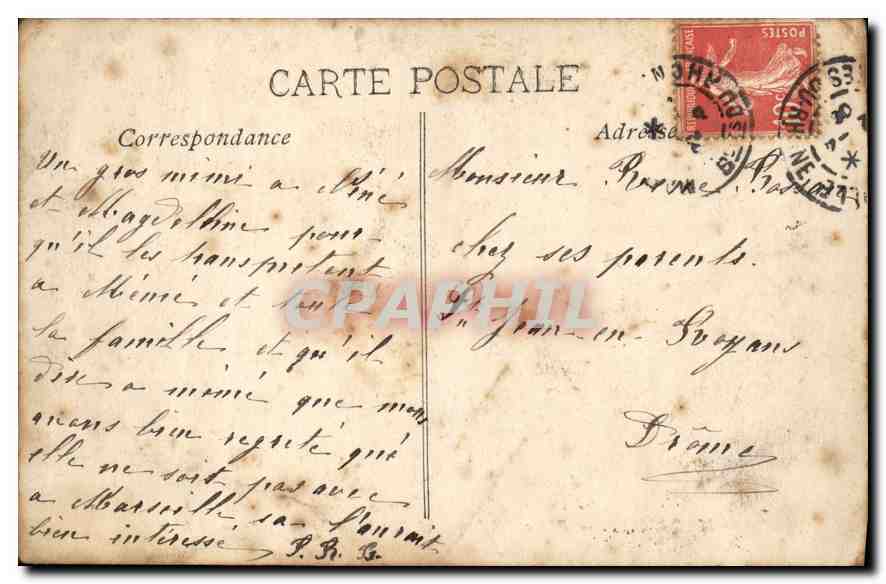 CARTE POSTALE
Correspondance
Un gros mimi a Néné
et Magdelline pour
qu'il les transportent
a Mémé et toute
la famille et qu'il
dise a mémé que nous
avons bien regreté qué
elle ne soit pas avec
a Marseille sa l'aurait
bien interessé P. R. G.
Adresse
Monsieur
chez ses parents.
St Jean-en-Royans
Drôme
POSTES
CPAPHIL